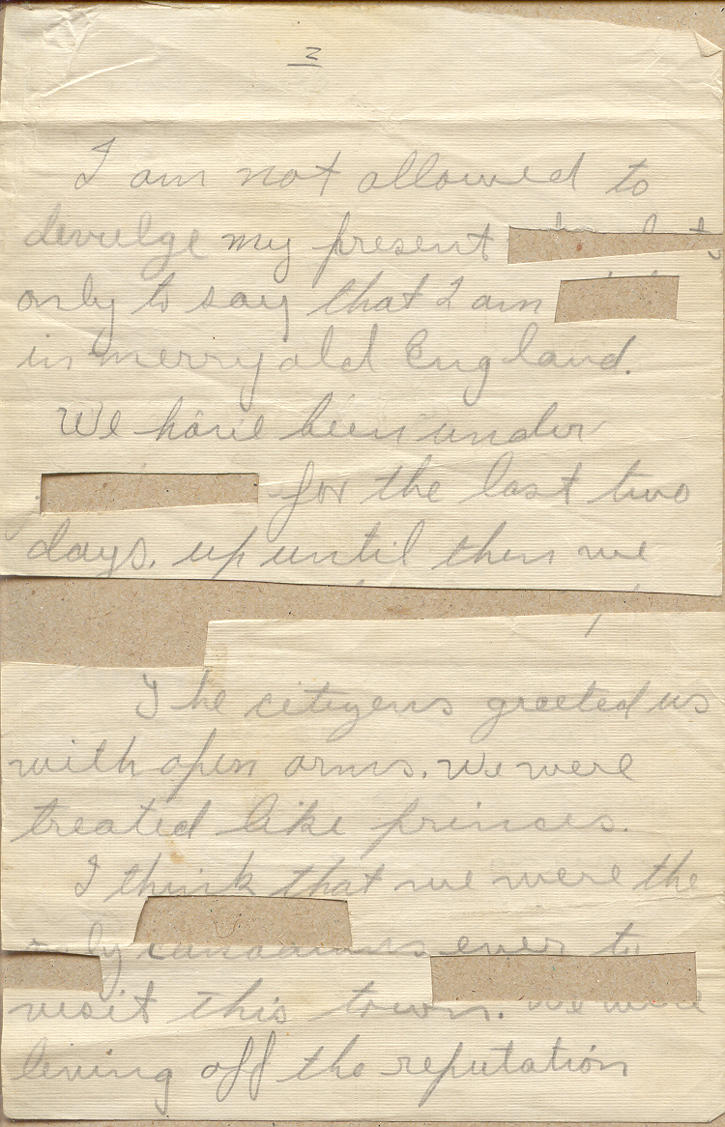 2
I am not allowed to
devulge my present
only to say that I am
in merry old England.
We have been under
for the last two
days. up until then we
The citizens greeted us
with open arms. We were
treated like princes.
I think that we were the
only canadians ever to
visit this town. We were
living off the reputation